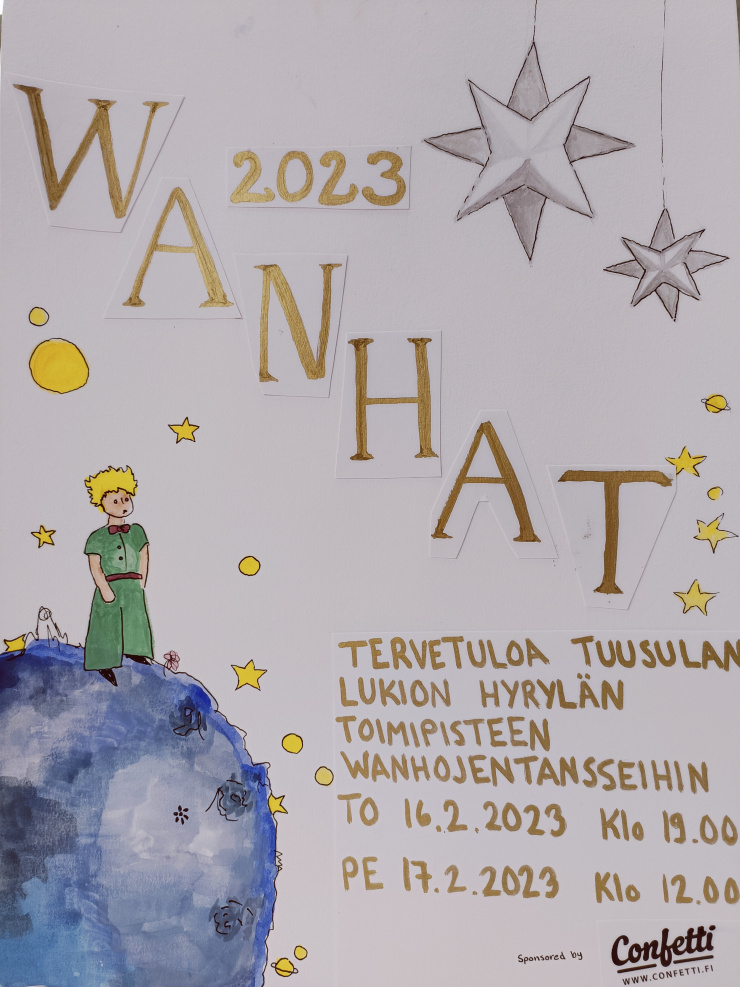 WANHAT
2023
TERVETULOA TUUSULAN
LUKION HYRYLÄN
TOIMIPISTEEN
WANHOJENTANSSEIHIN
TO 16.2.2023 Klo 19.00
PE 17.2.2023 Klo 12.00
Sponsored by Confetti
WWW.CONFETTI.FI